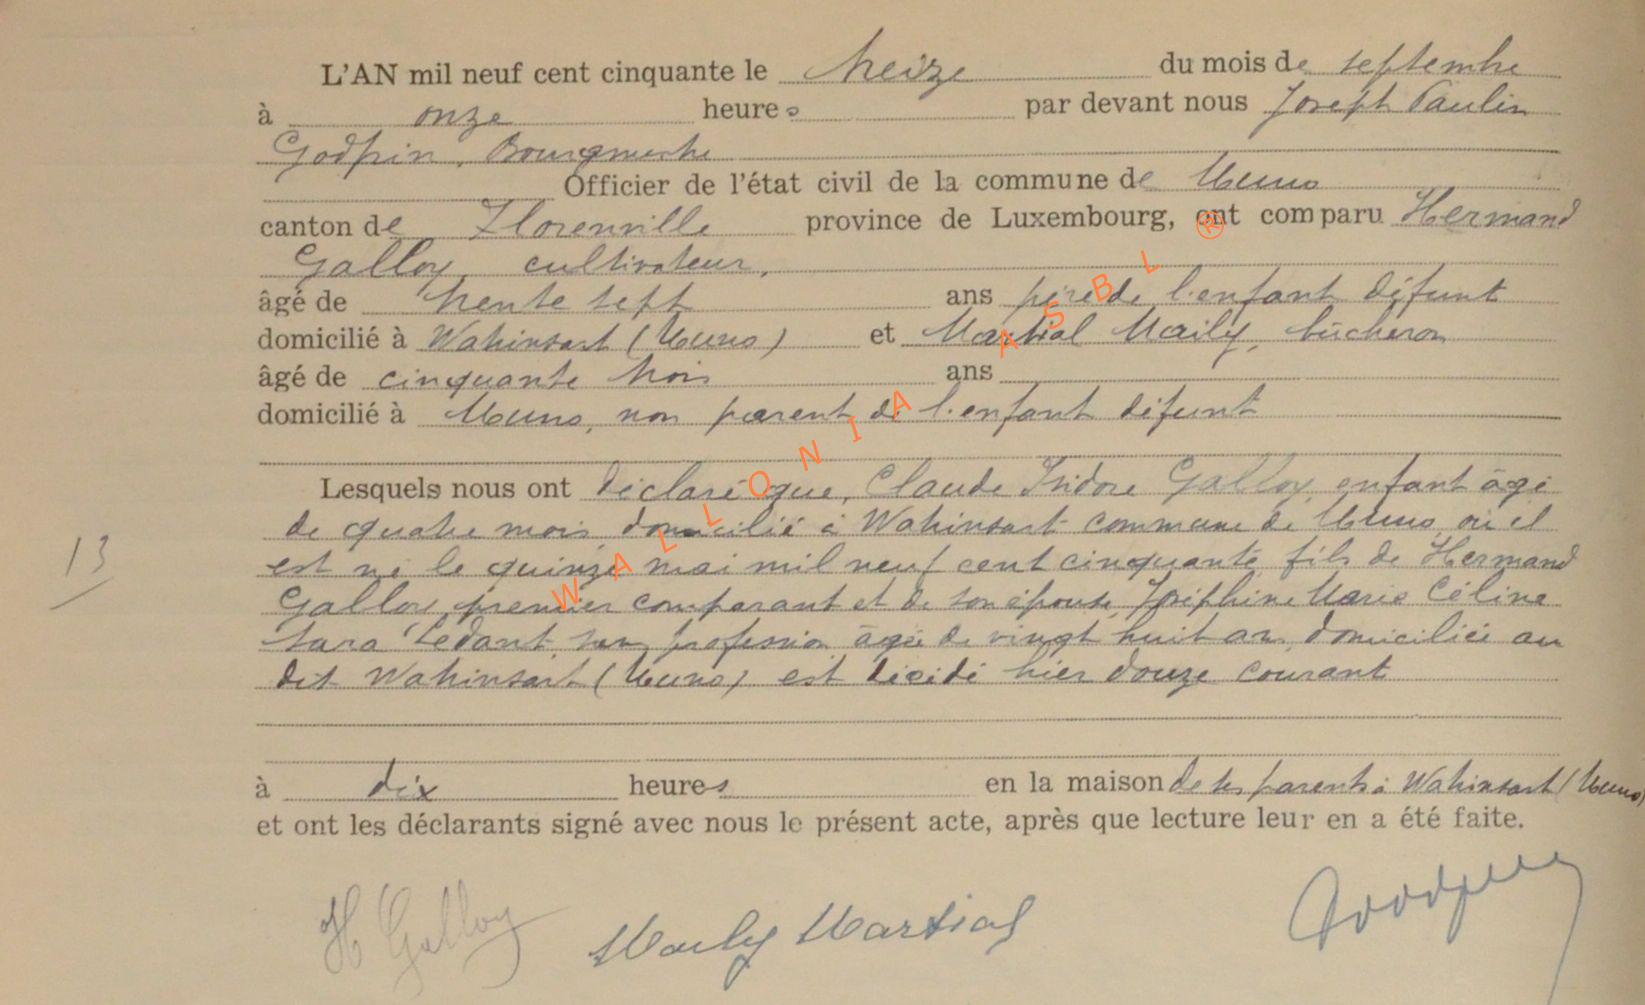 L'AN mil neuf cent cinquante le treize du mois de septembre
à onze heures par devant nous Joseph Paulin
Godfrin, Bourgmestre
Officier de l'état civil de la commune de Muno
canton de Florenville province de Luxembourg, ont comparu Hermand
Galloy, cultivateur,
âgé de trente sept ans père de l'enfant défunt
domicilié à Wahinsart (Muno) et Martial Maily, bûcheron
âgé de cinquante trois ans
domicilié à Muno, non parent de l'enfant défunt
Lesquels nous ont déclaré que, Claude Isidore Galloy, enfant âgé
de quatre mois, domicilié à Wahinsart commune de Muno, où il
est né le quinze mai mil neuf cent cinquante fils de Hermand
Galloy, premier comparant et de son épouse, Joséphine Marie Céline
Sara Ledant, sans profession âgée de vingt huit ans, domiciliée au
dit Wahinsart (Muno) est décédé hier douze courant
13
à dix heures en la maison de ses parents à Wahinsart (Muno)
et ont les déclarants signé avec nous le présent acte, après que lecture leur en a été faite.
H Galloy Maily Martial
WALLONIA ASBL ®